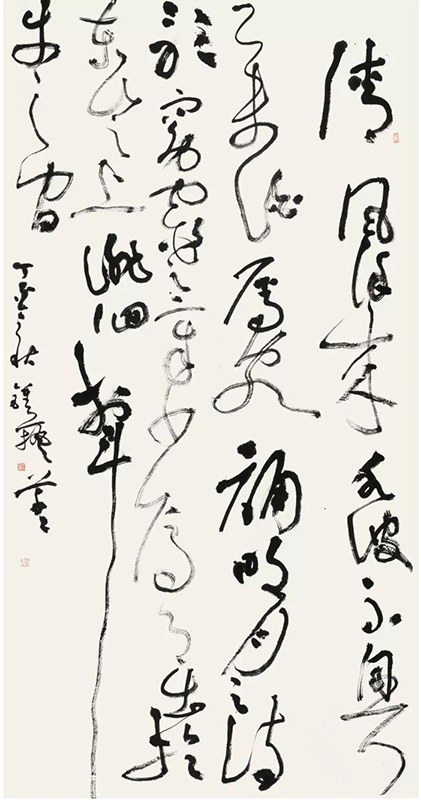 清風徐來水波不興
舉酒屬客誦明月之詩
歌窈窕之章少焉月出於
東山之上徘徊於斗
牛之間
之秋